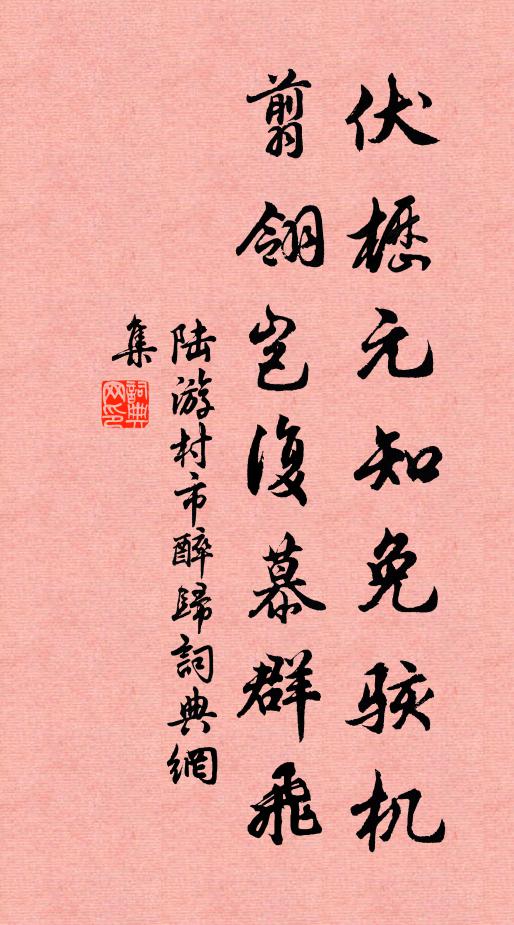 伏櫪元知免駭机
翦翎豈復慕群飛
陆游村市醉歸詞典網
集
詞典網印